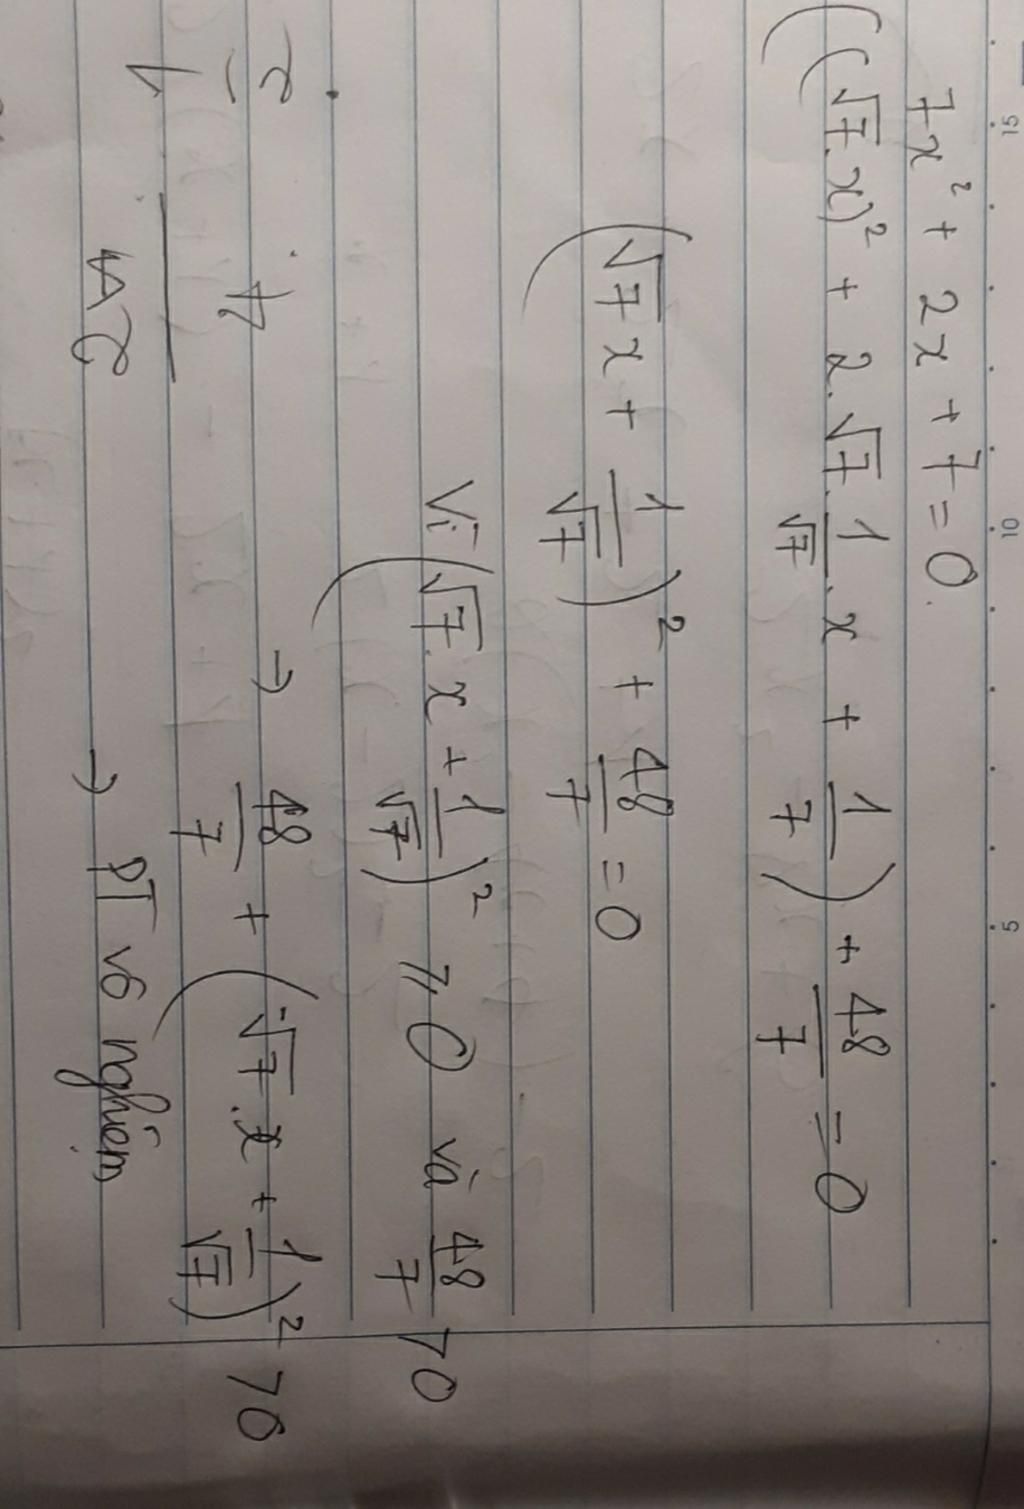 7x² + 2x + 7 = 0.
((√7.x)² + 2.√7.1/√7.x + 1/7) + 48/7 = 0
(√7x + 1/√7)² + 48/7 = 0
Vì (√7.x + 1/√7)² ≥ 0 và 48/7 > 0
→ 48/7 + (√7.x + 1/√7)² > 0
→ PT vô nghiệm
15
10
5